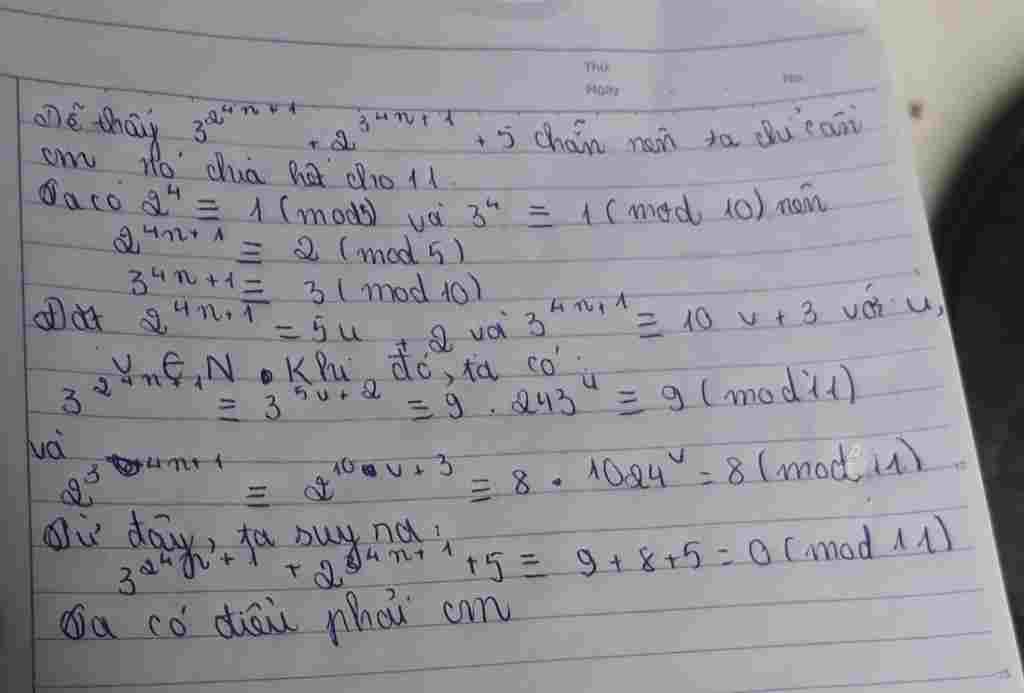 Thứ
Ngày
No.
Dễ thấy 3^2^4n+1 + 2^3^4n+1 + 5 chẵn nên ta chỉ cần
cm nó chia hết cho 11.
Ta có 2^4 ≡ 1 (mod5) và 3^4 ≡ 1 (mod 10) nên
2^4n+1 ≡ 2 (mod 5)
3^4n+1 ≡ 3 (mod 10)
Đặt 2^4n+1 = 5u + 2 và 3^4n+1 ≡ 10 v + 3 với u,
v ∈ N. Khi đó, ta có:
3^2^4n+1 ≡ 3^5u+2 ≡ 9 . 243^u ≡ 9 (mod 11)
và
2^3^4n+1 ≡ 2^10v+3 ≡ 8 . 1024^v = 8 (mod 11)
Từ đây, ta suy ra:
3^2^4n+1 + 2^3^4n+1 + 5 ≡ 9 + 8 + 5 = 0 (mod 11)
Ta có điều phải cm